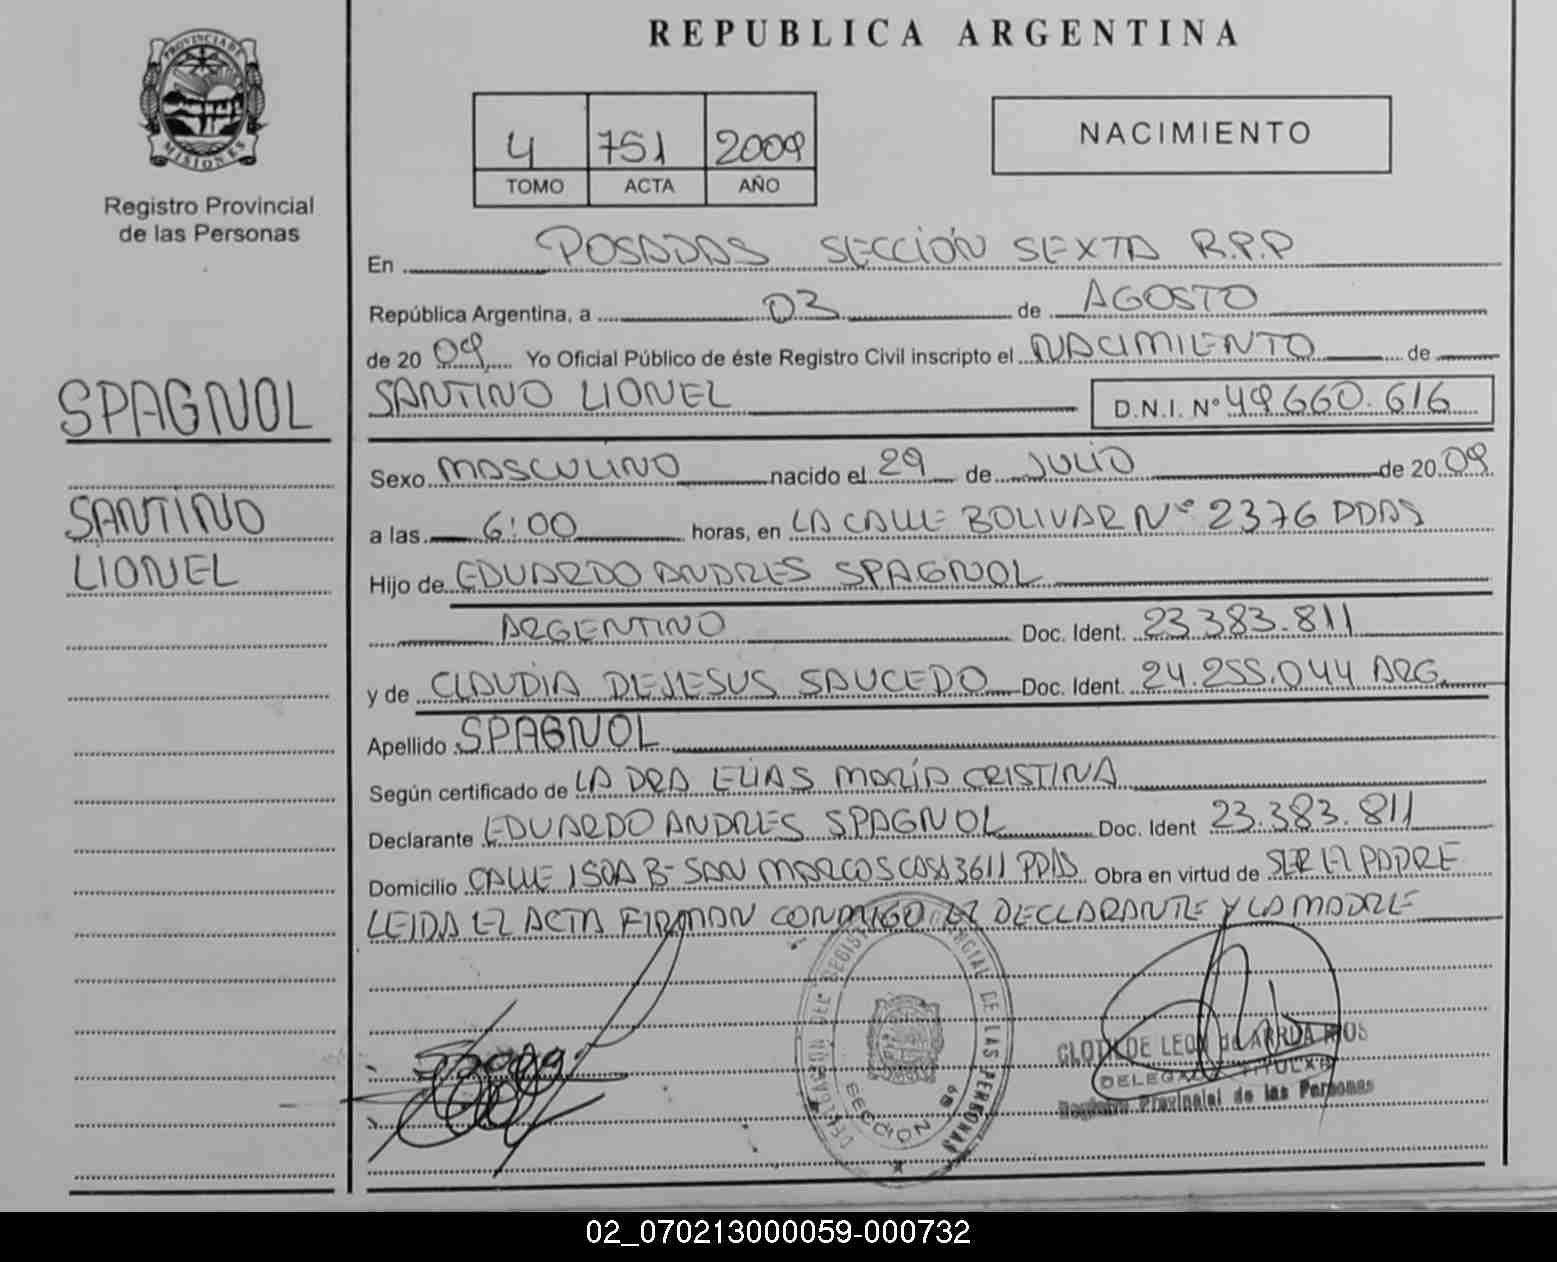 REPUBLICA ARGENTINA
PROVINCIA DE MISIONES
Registro Provincial
de las Personas
4 751 2009
TOMO ACTA AÑO
NACIMIENTO
En POSADAS SECCIÓN SEXTA R.P.P
República Argentina, a 03 de AGOSTO
de 2009 Yo Oficial Público de éste Registro Civil inscripto el NACIMIENTO de
SPAGNOL
SANTINO LIONEL D.N.I. Nº 49660.616
Sexo MASCULINO nacido el 29 de JULIO de 2009
SANTINO
LIONEL
a las 6:00 horas, en LA CALLE BOLIVAR Nº 2376 PDAS
Hijo de EDUARDO ANDRES SPAGNOL
ARGENTINO Doc. Ident. 23.383.811
y de CLAUDIA DEJESUS SAUCEDO Doc. Ident. 24.255.044 ARG.
Apellido SPAGNOL
Según certificado de LA DRA ELIAS MARÍA CRISTINA
Declarante EDUARDO ANDRES SPAGNOL Doc. Ident 23.383.811
Domicilio CALLE 150A B- SAN MARCOS CASA 3611 PDAS Obra en virtud de SER EL PADRE
LEIDA EL ACTA FIRMAN CONMIGO EL DECLARANTE Y LA MADRE
DE LAS PERSONAS
SECCION
CLOTILDE LEON de ARRUA RIOS
DELEGADA TITULAR
Registro Provincial de las Personas
02_070213000059-000732